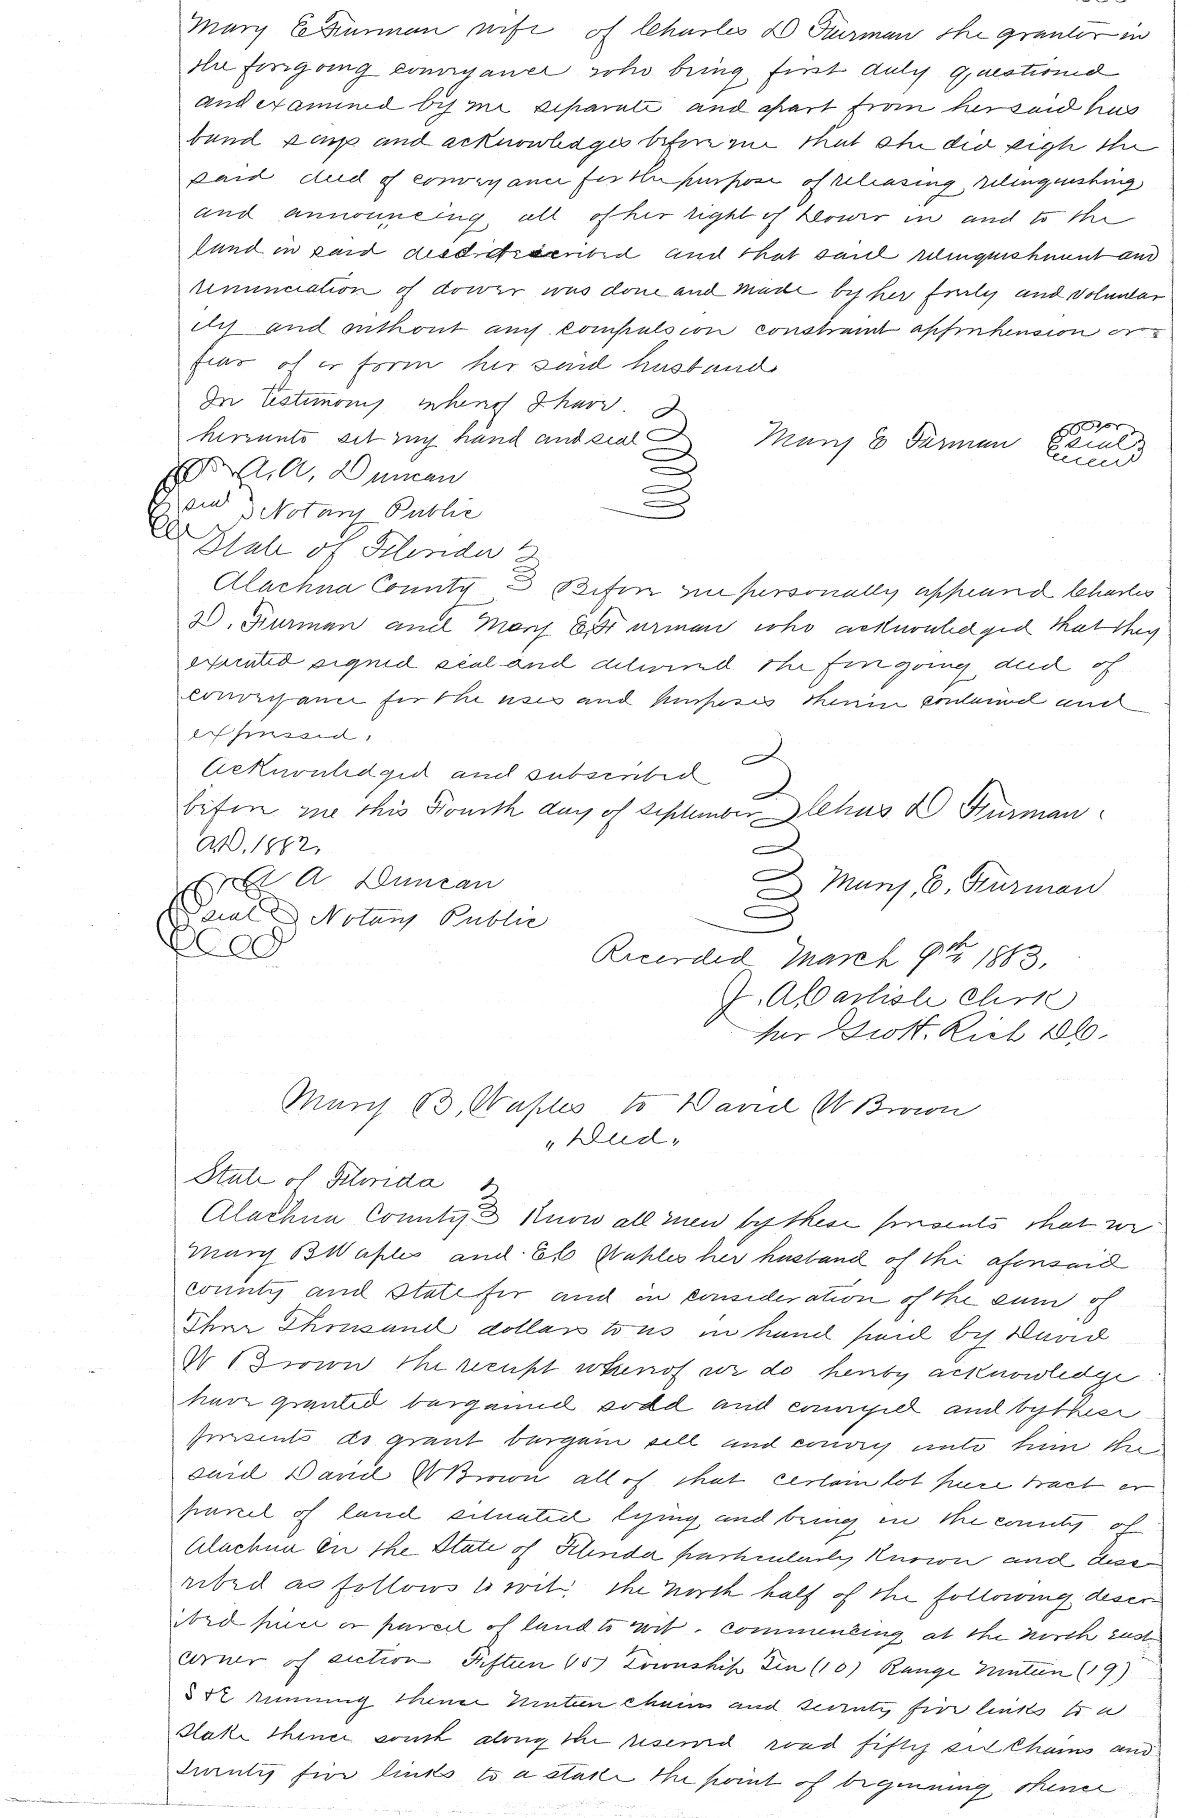 Mary E Furman wife of Charles D Furman the grantor in
the foregoing conveyance who being first duly questioned
and examined by me separate and apart from her said hus
band says and acknowledges before me that she did sigh the
said deed of conveyance for the purpose of releasing, relinquishing
and announcing all of her right of Dower in and to the
land in said deed described and that said relinquishment and
renunciation of dower was done and made by her freely and voluntar
ily and without any compulsion constraint apprehension or
fear of or form her said husband.
In Testimony whereof I have
hereunto set my hand and seal
Mary E Furman seal
A. A. Duncan
seal Notary Public
State of Florida
Alachua County Before me personally appeared Charles
D. Furman and Mary E. Furman who acknowledged that they
executed signed seal and delivered the foregoing deed of
conveyance for the uses and purposes therein contained and
expressed.
Acknowledged and subscribed
before me this Fourth day of September Chas D Furman
AD. 1882.
A A Duncan Mary, E, Furman
seal Notary Public
Recorded March 9th 1883.
J. A Carlisle Clerk
per Rich DC.
Mary B, Waples to David W Brown
"Deed"
State of Florida
Alachua County Know all men by these presents that we
Mary B Waples and E C Waples her husband of the aforesaid
county and state for and in consideration of the sum of
Three Thousand dollars to us in hand paid by David
W Brown the receipt whereof we do hereby acknowledge
have granted bargained sold and conveyed and by these
presents do grant bargain sell and convey unto him the
said David W Brown all of that certain lot piece tract or
parcel of land situated lying and being in the county of
Alachua in the State of Florida particularly known and desc
ribed as follows to wit: the north half of the following descr
ibed piece or parcel of land to wit. commencing at the north east
corner of section Fifteen (15) Township Ten (10) Range Ninteen (19)
S & E running thence Ninteen chains and seventy five links to a
stake thence south along the reserved road fifty six Chains and
twenty five links to a stake the point of beginning thence